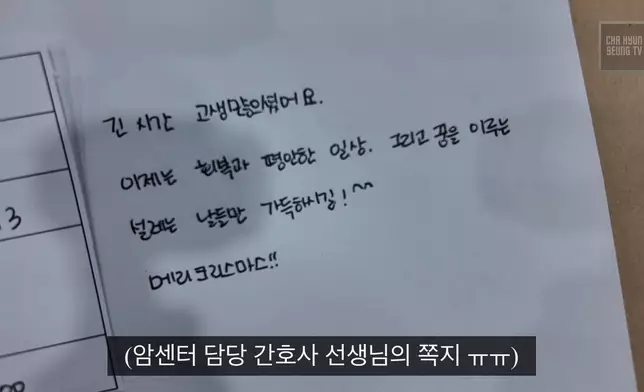 CHA HYUN
SEUNG TV
긴 시간 고생많으셨어요.
이제는 회복과 평안한 일상. 그리고 꿈을 이루는
설레는 날들만 가득하시길! ^^
메리크리스마스!!
3
00
(암센터 담당 간호사 선생님의 쪽지 ㅠㅠ)